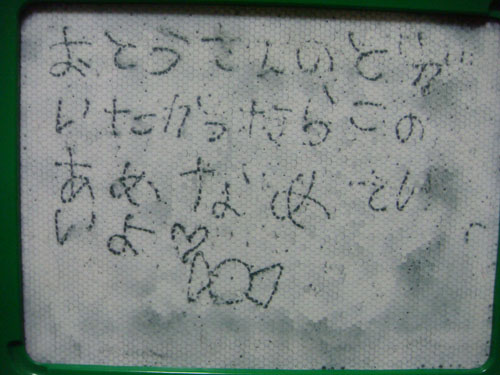 おとうさんのどが
いたかったらこの
あめなめとい
いよ